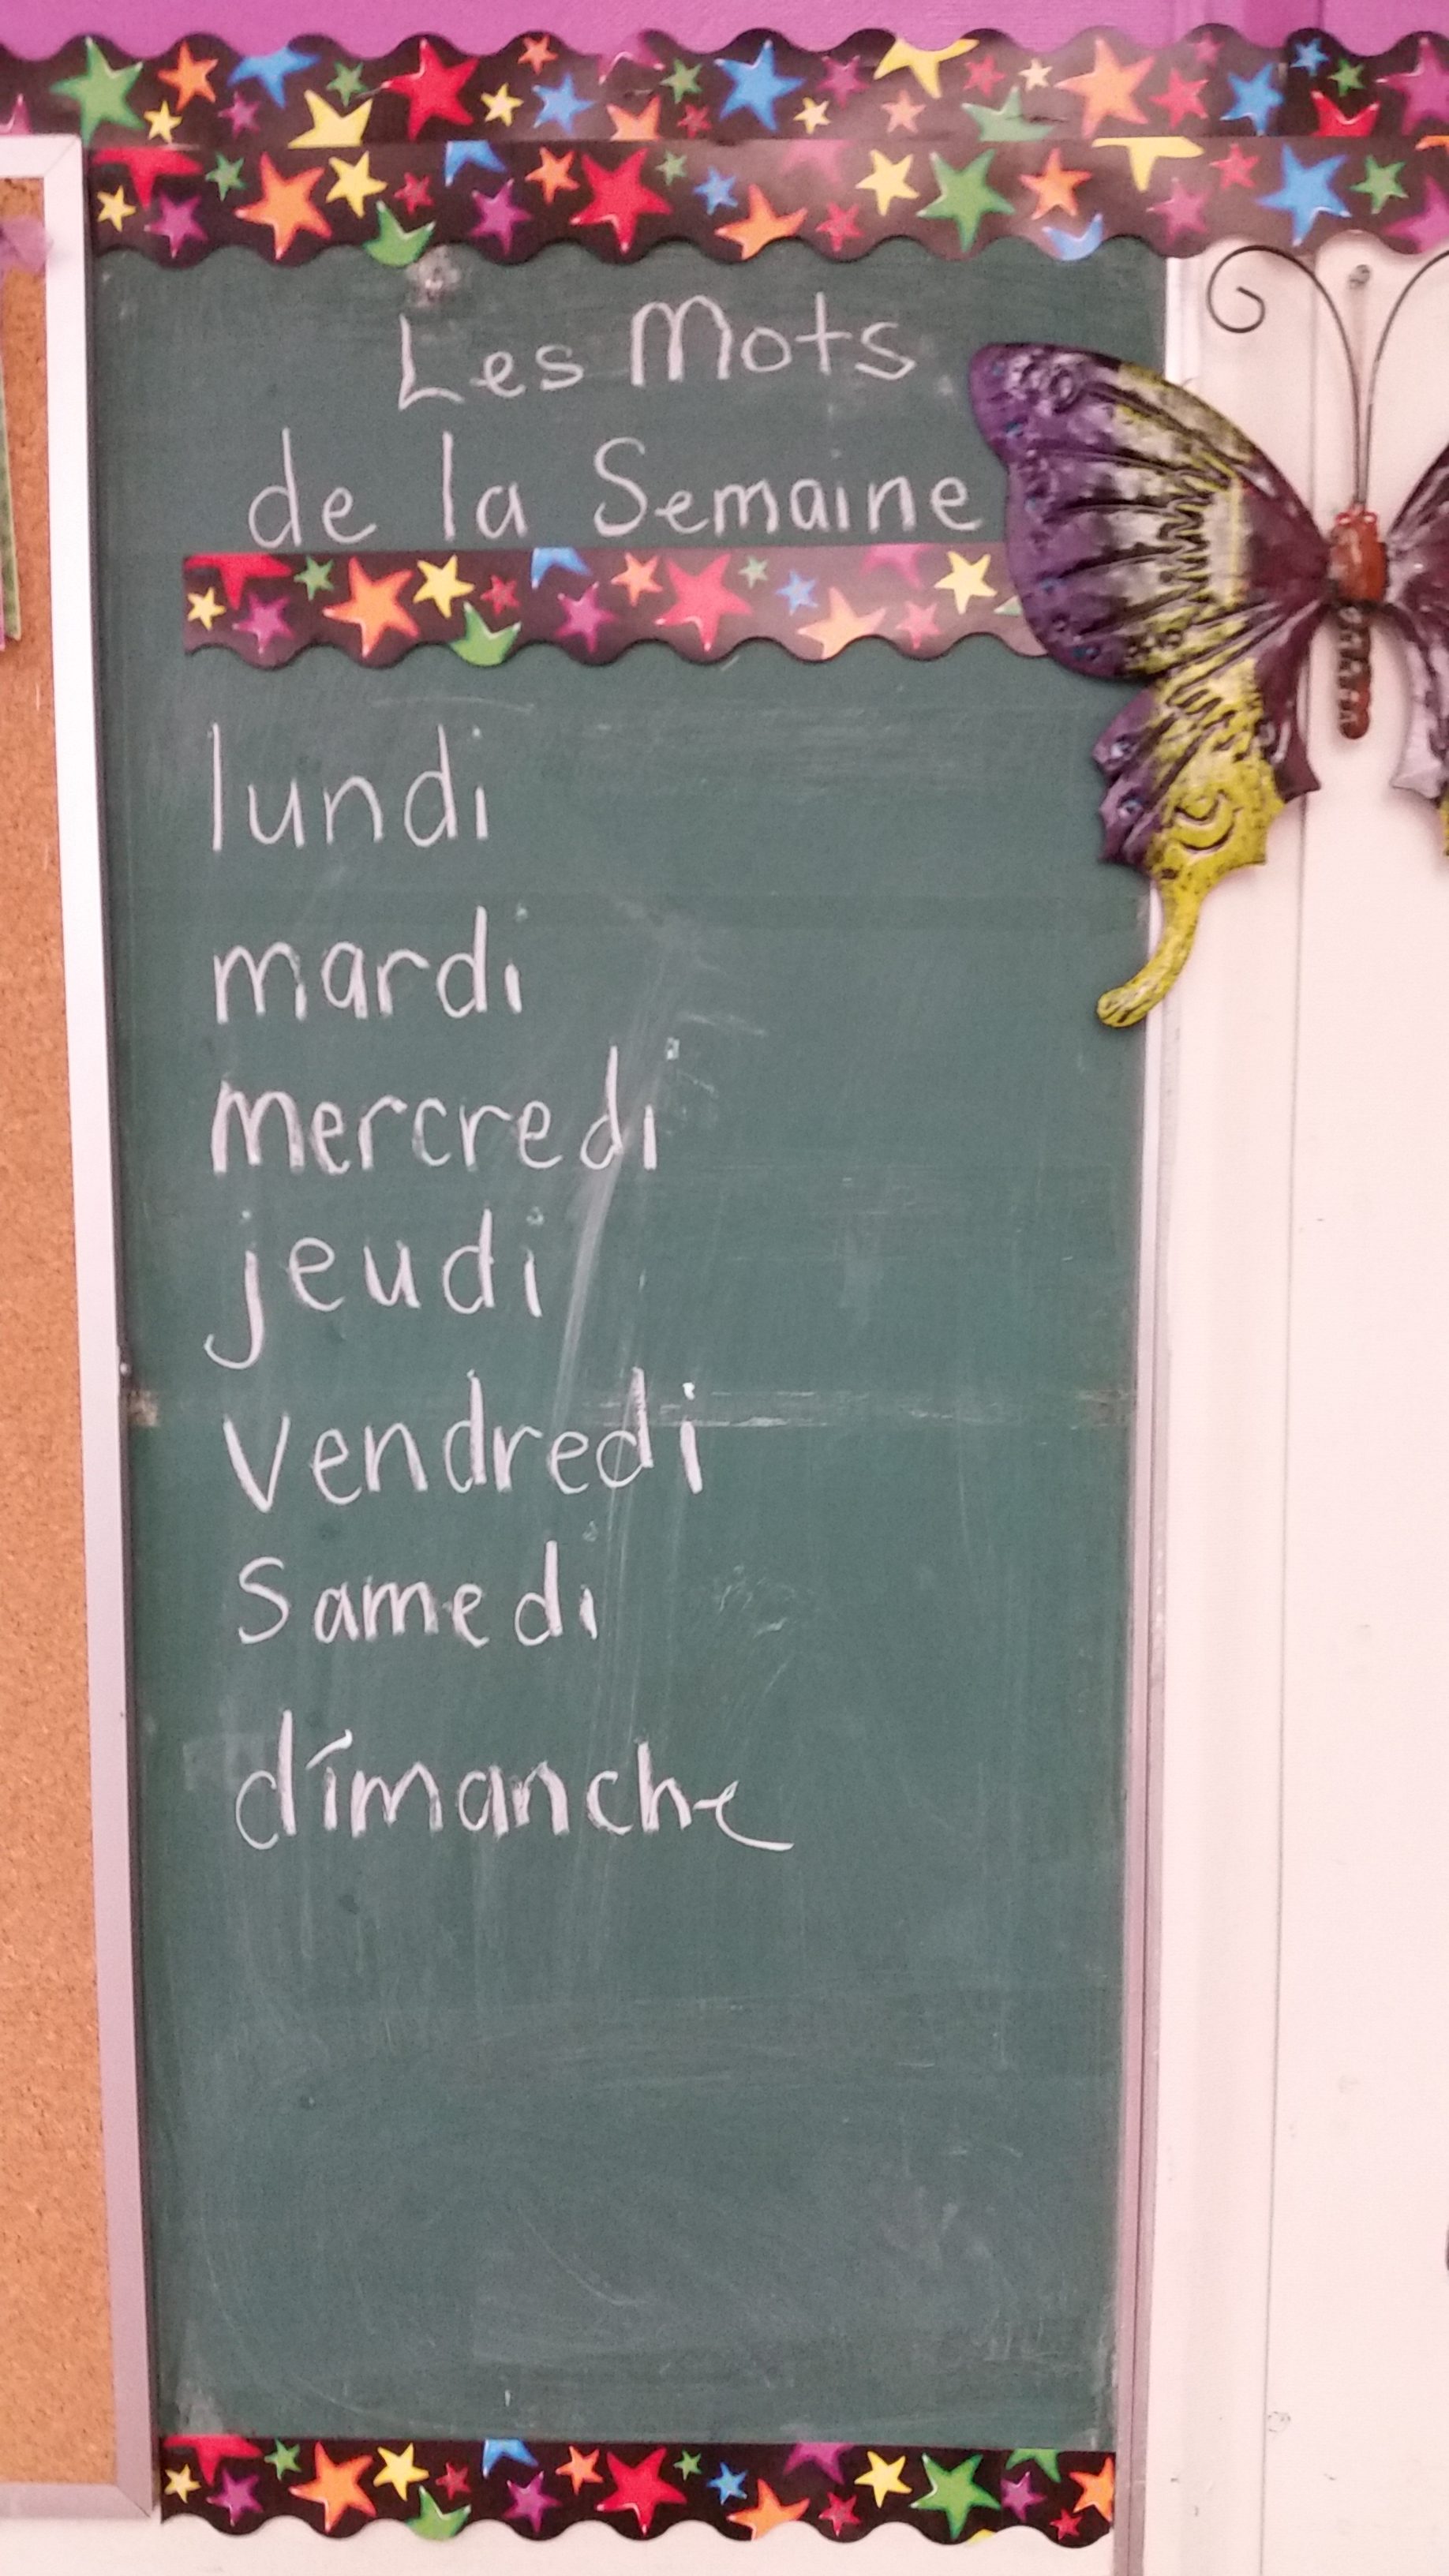 Les Mots
de la Semaine
lundi
mardi
mercredi
jeudi
vendredi
Samedi
dimanche